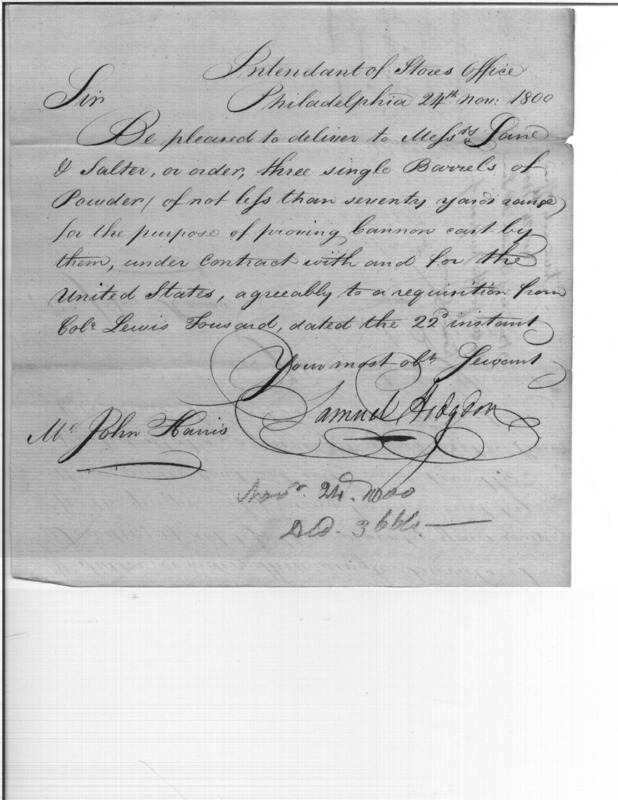 Intendant of Stores Office
Sir Philadelphia 24th nov: 1800
Be pleased to deliver to Messrs Lane
& Salter, or order, three single Barrels of
Powder, of not less than seventy yards range
for the purpose of proving Cannon cast by
them, under Contract with and for the
United States, agreeably to a requisition from
Colo. Lewis Tousard, dated the 22d instant
Your most obt. Servant
Samuel Hodgdon
Mr John Harris
Novr. 24. 1800
Dld. 3 bbls.